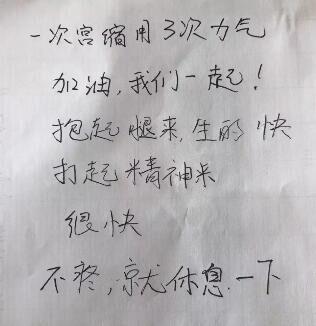 一次宫缩用3次力气
加油,我们一起!
抱起腿来,生的快
打起精神来
很快
不疼,就休息一下